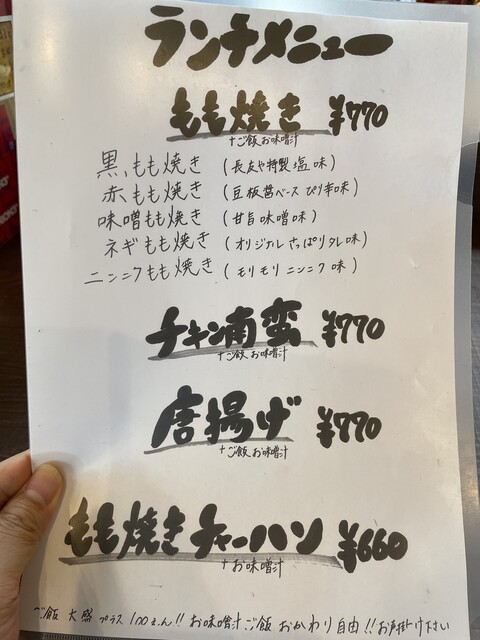 ランチメニュー
もも焼き ¥770
+ご飯 お味噌汁
黒もも焼き (長友や特製塩味)
赤もも焼き (豆板醤ベース ぴり辛味)
味噌もも焼き (甘旨味噌味)
ネギもも焼き (オリジナル さっぱりタレ味)
ニンニクもも焼き (モリモリニンニク味)
チキン南蛮 ¥770
+ご飯 お味噌汁
唐揚げ ¥770
+ご飯 お味噌汁
もも焼きチャーハン ¥660
+お味噌汁
ご飯 大盛 プラス 100えん!! お味噌汁ご飯 おかわり自由!! お声掛け下さい